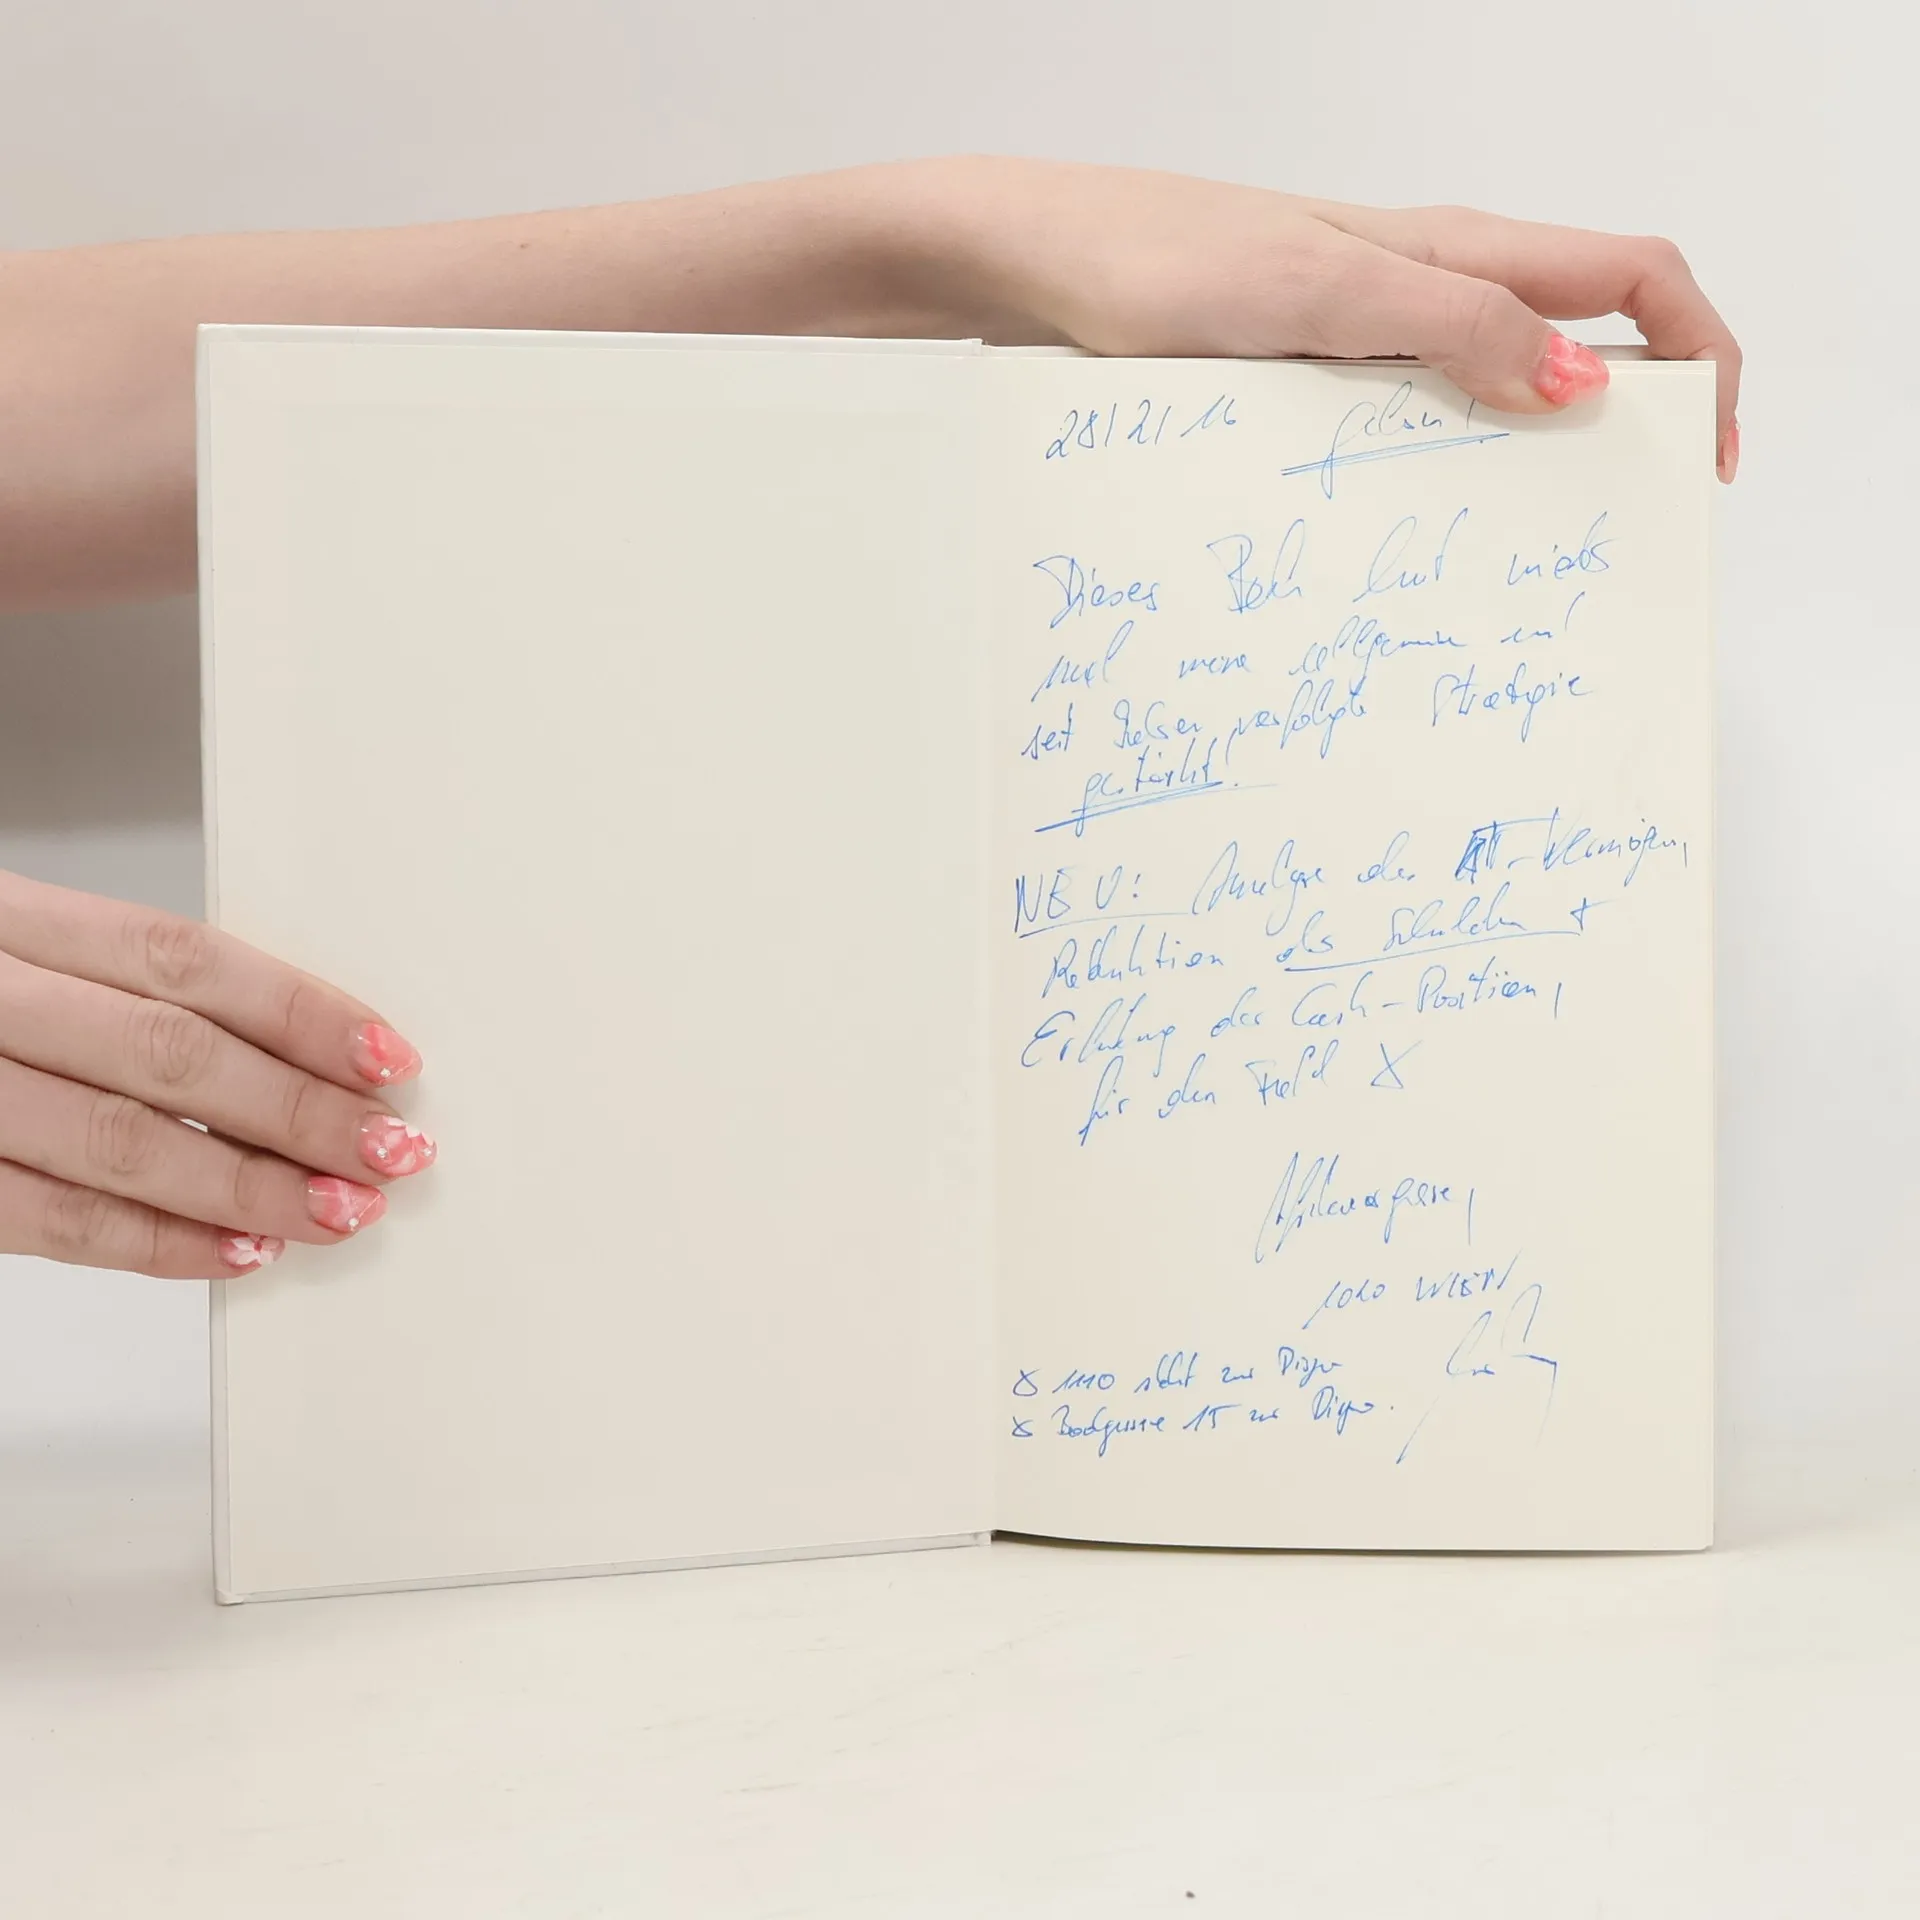 28/2/16 gelesen!
Dieses Buch hat
und meine allgemeine und
seit Jahren verfolgte Strategie
gestärkt!
NEU: Analyse des -Vermögen,
Reduktion der Schulden +
Erhöhung der Cash-Position,
für den Fall X
1010 WIEN
X 1110 steht zur Dispo
X Badgasse 15 zur Dispo.